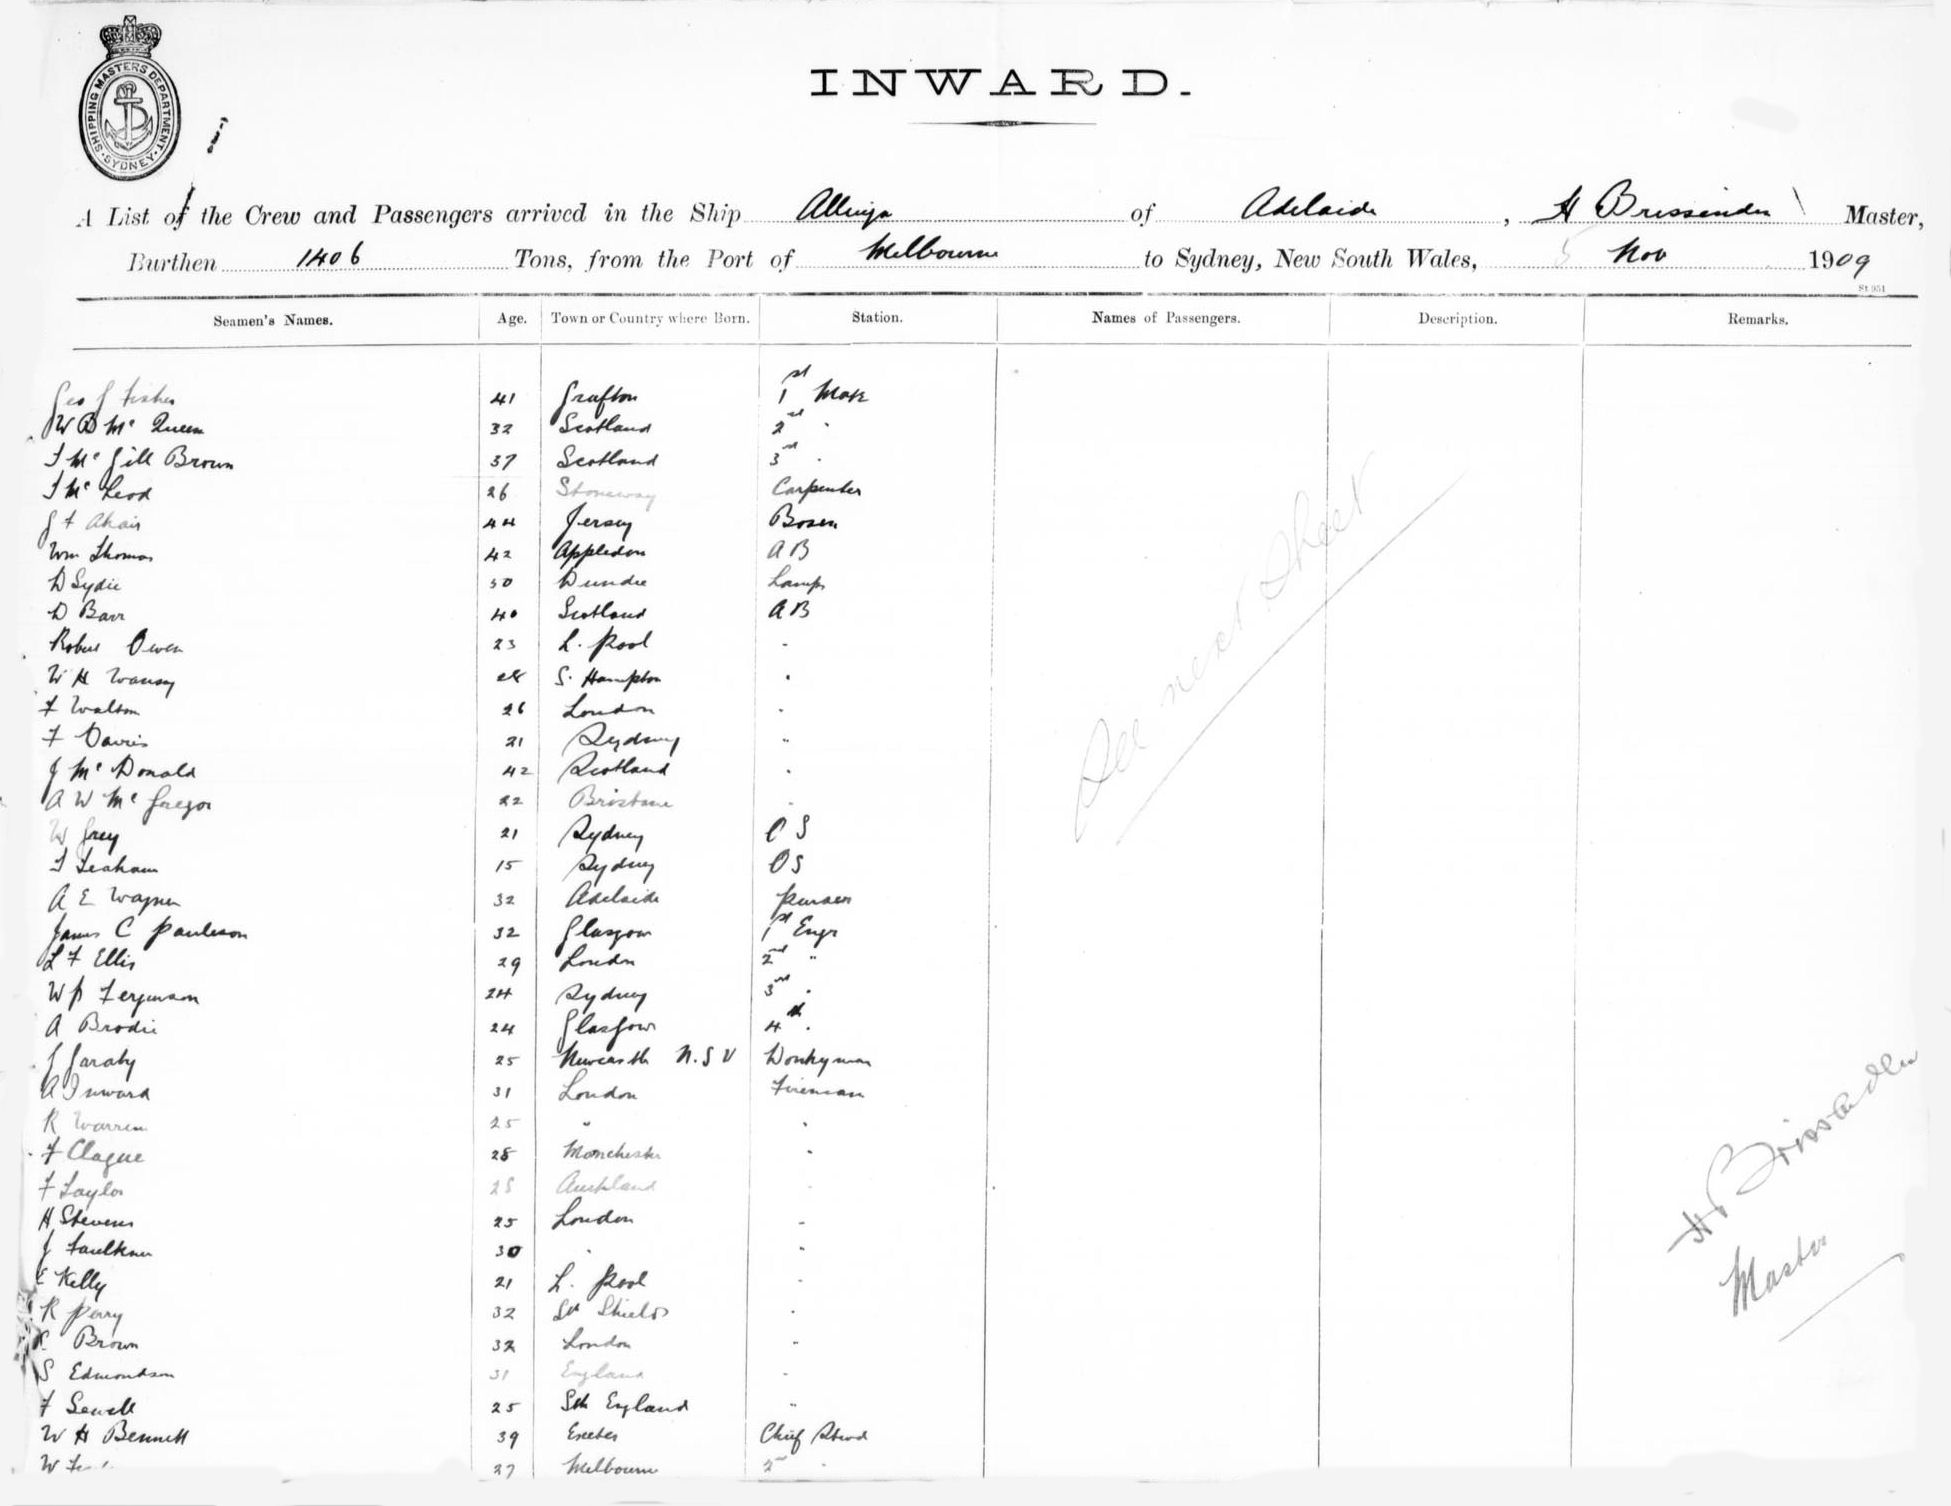 SHIPPING MASTERS DEPARTMENT
SYDNEY
INWARD.
A List of the Crew and Passengers arrived in the Ship Allinga of Adelaide, H Brissenden Master,
Burthen 1406 Tons, from the Port of Melbourne to Sydney, New South Wales, 5 Nov 1909
Seamen's Names. Age. Town or Country where Born. Station. Names of Passengers. Description. Remarks.
Geo J Fisher 41 Grafton 1st Mate
W B Mc Queen 32 Scotland 2nd "
J Mc Gill Brown 37 Scotland 3rd "
J Mc Leod 26 Stoneway Carpenter
J F Ahair 44 Jersey Bosen
Wm Thomas 42 Appledon A B
D Sydie 30 Dundee Lamps
D Barr 40 Scotland A B
Robert Owen 23 L. Pool "
W H 28 S. Hampton "
F Walton 26 London "
F Davis 21 Sydney "
J Mc Donald 42 Scotland "
A W Mc Gregor 22 Brisbane "
W Grey 21 Sydney O S
15 Sydney O S
A E Wagner 32 Adelaide purser
James C Pauleson 32 Glasgow 1st Engr
L F Ellis 29 London 2nd "
W P Ferguson 24 Sydney 3rd "
A Brodie 24 Glasgow 4th "
J Garaty 25 Newcastle N.S.W Donkyman
A Inward 31 London Fireman
R Warren 25 " "
F Clague 28 Manchester "
F Taylor 25 Auckland "
H Stevens 25 London "
J Faulkner 30 " "
E Kelly 21 L. Pool "
R Perry 32 Sth Shields "
Brown 32 London "
S Edmondson 31 England "
F Sewell 25 Sth England "
W H Bennett 39 Exeter Chief Stwd
W 27 Melbourne 2nd "
See next sheet
H Brissenden
Master